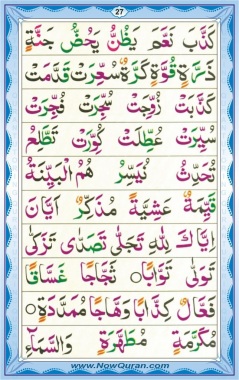 27
كَذَّبَ نَعَّمَ يَظُنُّ يَحُضُّ جَنَّةٍ
ذَرَّةٍ قُوَّةٍ كَرَّةٌ سُعِّرَتْ قَدَّمَتْ
كَذَّبَتْ زُوِّجَتْ سُجِّرَتْ فُجِّرَتْ
سُيِّرَتْ عُطِّلَتْ كُوِّرَتْ تَطَّلِعُ
تُحَدِّثُ نُيَسِّرُ هُمُ الْبَيِّنَةُ
قَيِّمَةُ عَشِيَّةً مُذَكِّرٌ اَيَّانَ
اِيَّاكَ لِلّٰهِ تَجَلّٰى تَصَدّٰى تَزَكّٰى
تَوَلّٰى تَوَّابًا ثَجَّاجًا غَسَّاقًا
فَعَّالٌ كِذَّابًا وَهَّاجًا مُمَدَّدَةٍ
مُكَرَّمَةٍ مُطَهَّرَةٍ وَالسَّمَآءِ
www.NowQuran.com